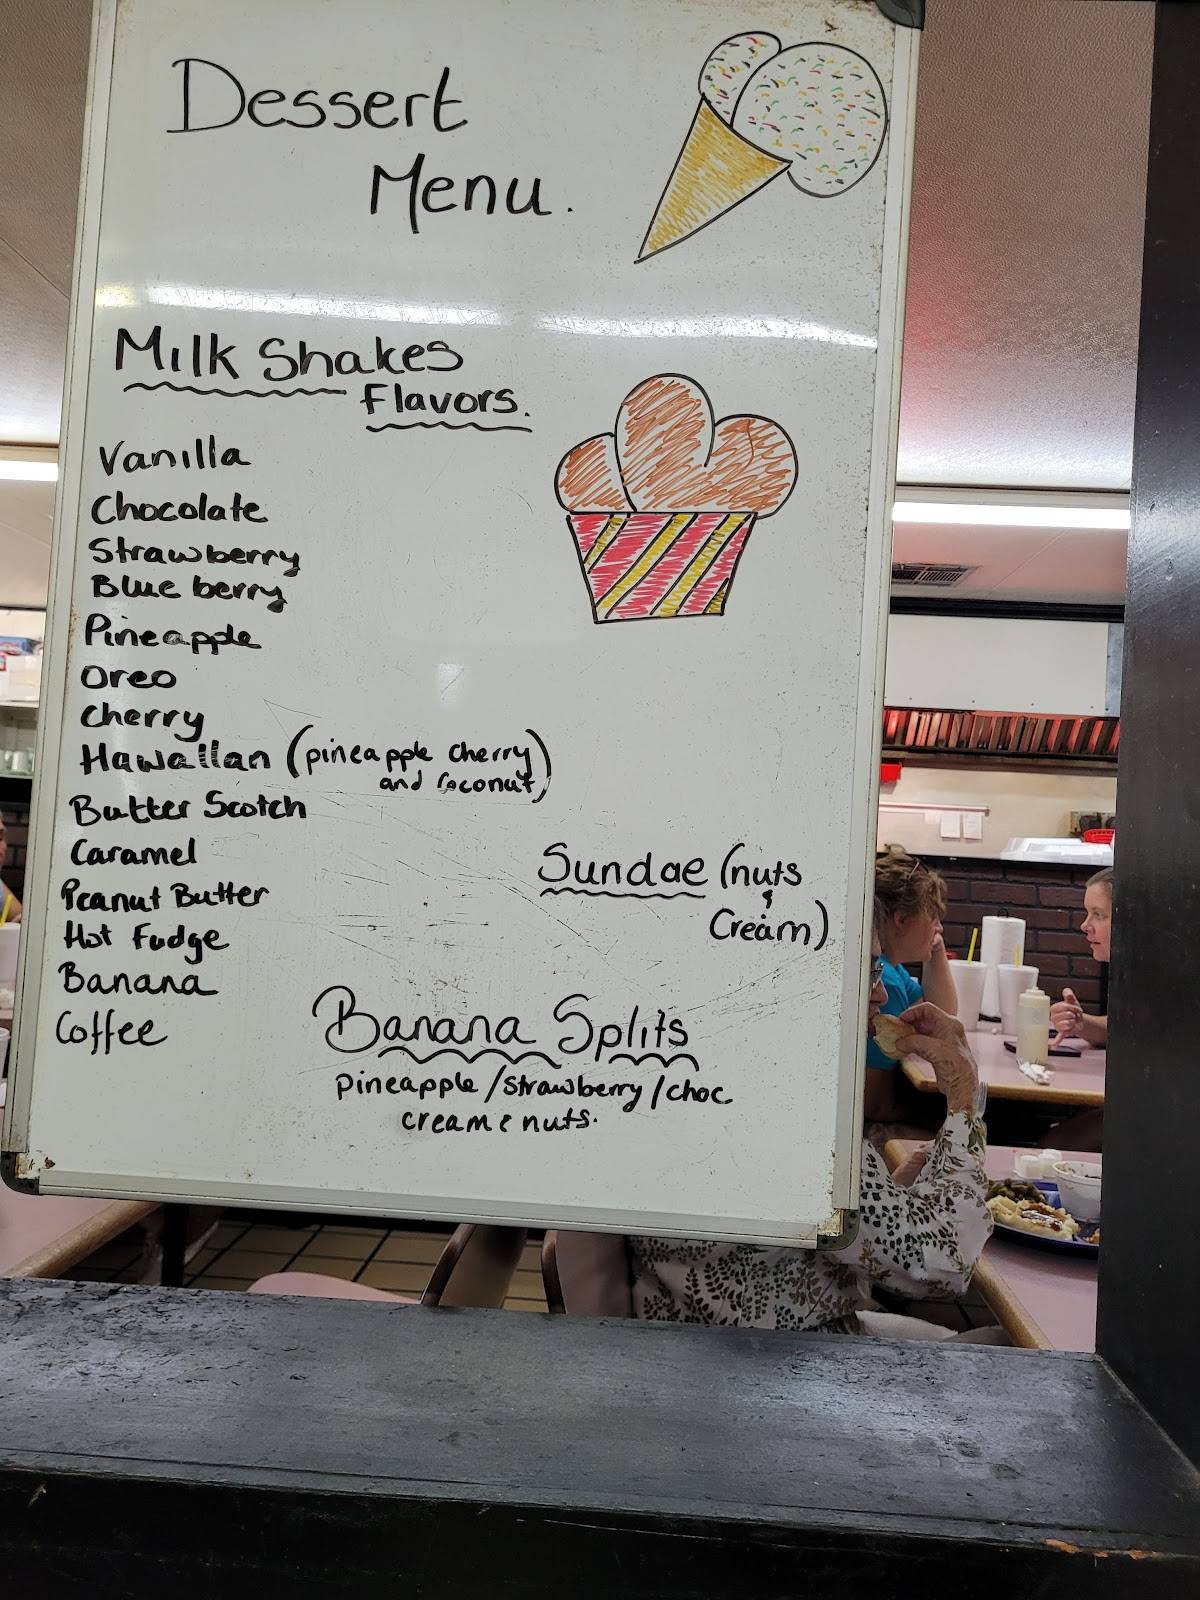 Dessert
Menu.
Milk Shakes
Flavors.
Vanilla
Chocolate
Strawberry
Blue berry
Pineapple
Oreo
Cherry
Hawaiian (pineapple cherry
and coconut)
Butter Scotch
Caramel
Peanut Butter
Hot Fudge
Banana
Coffee
Sundae (nuts
&
Cream)
Banana Splits
pineapple/strawberry/choc
cream & nuts.